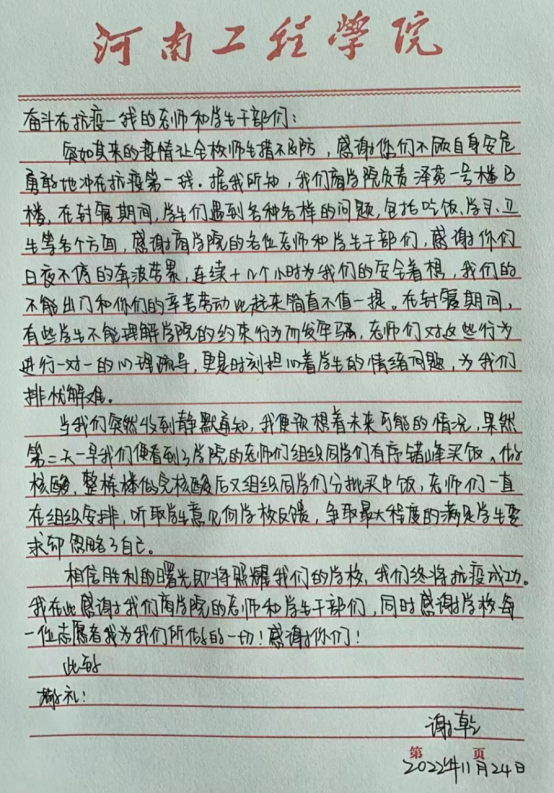 河南工程学院
奋斗在抗疫一线的老师和学生干部们：
突如其来的疫情让全校师生措不及防，感谢你们不顾自身安危
勇敢地冲在抗疫第一线。据我所知，我们商学院负责泽苑一号楼B
楼，在封寝期间，学生们遇到各种各样的问题，包括吃饭、学习、卫
生等各个方面，感谢商学院的各位老师和学生干部们，感谢你们
日夜不停的奔波劳累，连续十几个小时为我们的安全着想，我们的
不能出门和你们的辛苦劳动比起来简直不值一提。在封寝期间，
有些学生不能理解学院的约束行为而发牢骚，老师们对这些行为
进行一对一的心理疏导，更是时刻担心着学生的情绪问题，为我们
排忧解难。
当我们突然收到静默通知，我便预想着未来可能的情况，果然
第二天一早我们便看到了学院的老师们组织同学们有序错峰买饭，做
核酸，整栋楼做完核酸后又组织同学们分批买中饭，老师们一直
在组织安排，听取学生意见向学校反馈，争取最大程度的满足学生要
求却忽略了自己。
相信胜利的曙光即将照耀我们的学校，我们终将抗疫成功。
我在此感谢我们商学院的老师和学生干部们，同时感谢学校每
一位志愿者我为我们所做的一切！感谢你们！
此致
敬礼！
谢乾
第 页
2022年11月24日